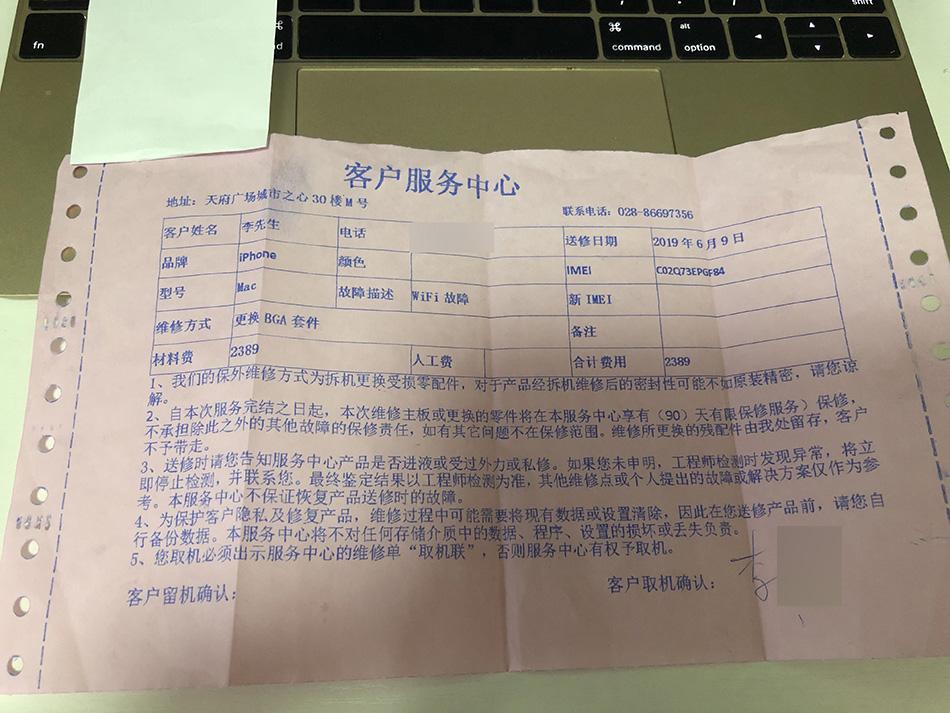 fn
⌘
command
alt
option
shift
客户服务中心
地址：天府广场城市之心30楼M号
联系电话：028-86697356
客户姓名 李先生 电话 送修日期 2019年6月9日
品牌 iPhone 颜色 IMEI C02Q73EPGF84
型号 Mac 故障描述 WiFi故障 新IMEI
维修方式 更换BGA套件 备注
材料费 2389 人工费 合计费用 2389
1、我们的保外维修方式为拆机更换受损零配件，对于产品经拆机维修后的密封性可能不如原装精密，请您谅
解。
2、自本次服务完结之日起，本次维修主板或更换的零件将在本服务中心享有（90）天有限保修服务）保修，
不承担除此之外的其他故障的保修责任，如有其它问题不在保修范围。维修所更换的残配件由我处留存，客户
不予带走。
3、送修时请您告知服务中心产品是否进液或受过外力或私修。如果您未申明，工程师检测时发现异常，将立
即停止检测，并联系您。最终鉴定结果以工程师检测为准，其他维修点或个人提出的故障或解决方案仅作为参
考。本服务中心不保证恢复产品送修时的故障。
4、为保护客户隐私及修复产品，维修过程中可能需要将现有数据或设置清除，因此在您送修产品前，请您自
行备份数据。本服务中心将不对任何存储介质中的数据、程序、设置的损坏或丢失负责。
5、您取机必须出示服务中心的维修单“取机联”，否则服务中心有权予取机。
客户留机确认：
客户取机确认：